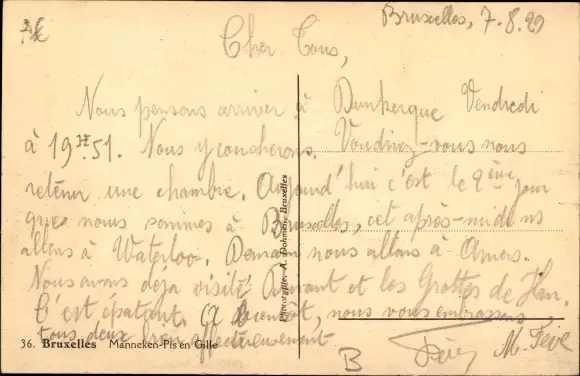 Bruxelles, 7.8.29
Cher Tous,
Nous pensons arriver à Dunkerque Vendredi
à 19H51. Nous y coucherons. Voudriez-vous nous
retenir une chambre. Aujourd'hui c'est le 2ème jour
que nous sommes à Bruxelles, cet après-midi ns
allons à Waterloo. Demain nous allons à Anvers.
Nous avons déjà visité Dinant et les Grottes de Han.
C'est épatant. A bientôt, nous vous embrassons
tous deux bien affectueusement
M.
B
36. Bruxelles Manneken-Pis en Gille
Phototypie A. Dohmen, Bruxelles